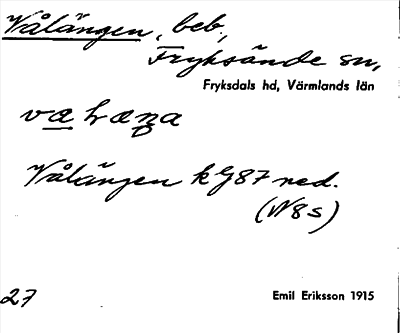 Vålängen, beb.,
Fryksände sn,
Fryksdals hd, Värmlands län
Vålängen kG87 ned.
(N8s)
27
Emil Eriksson 1915